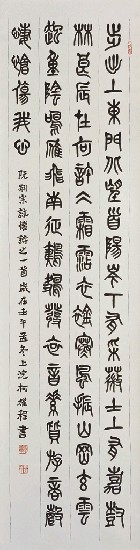 步出上東門北望首陽岑下有采薇士上有嘉樹
林良辰在何許凝霜霑衣襟寒風振山岡玄雲
起重陰鳴雁飛南征鶗鴂發哀音素質游商聲
悽愴傷我心
阮嗣宗詠懷詩之一首歲在壬午孟冬上浣柯程書